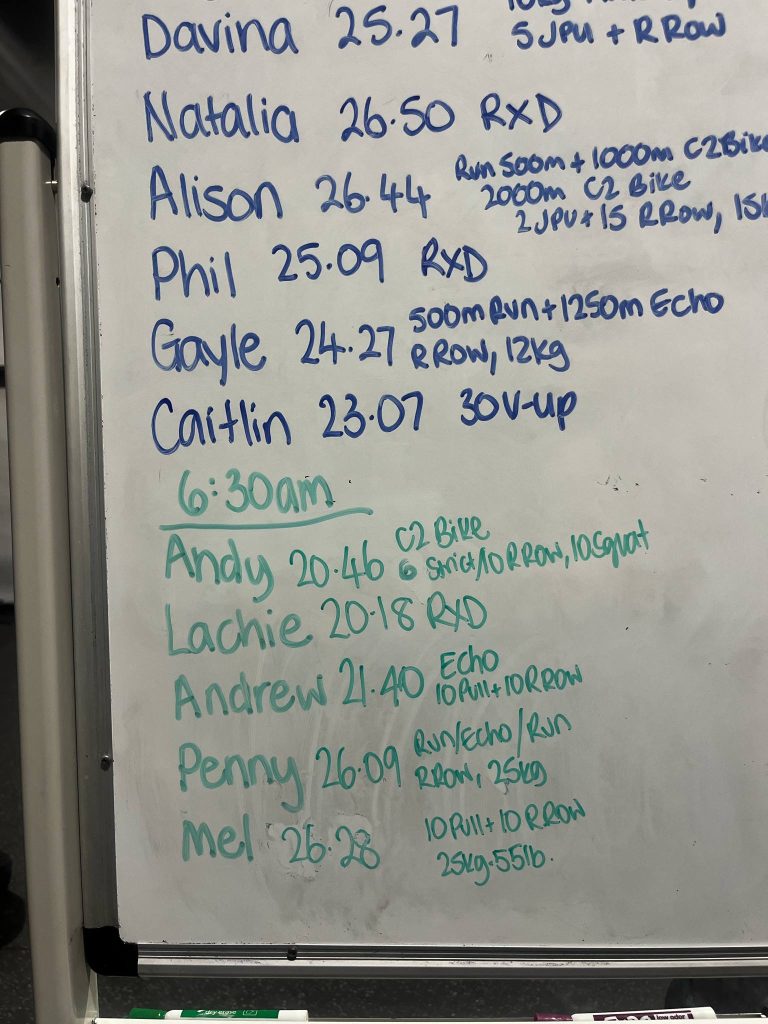 Davina 25.27 5 JPU + R ROW
Natalia 26.50 RXD
Alison 26.44 Run 500m + 1000m C2Bike
2000m C2 Bike
2 JPU + 15 R ROW,
Phil 25.09 RXD
Gayle 24.27 500m Run + 1250m Echo
R ROW, 12kg
Caitlin 23.07 30 V-up
6:30am
Andy 20.46 C2 Bike
6 Strict/10 R ROW, 10 Squat
Lachie 20.18 RXD
Andrew 21.40 Echo
10 Pull + 10 R ROW
Penny 26.09 Run/Echo/Run
R ROW, 25kg
Mel 26.28 10 Pull + 10 R ROW
25kg. 55lb.
dry erase
low odor